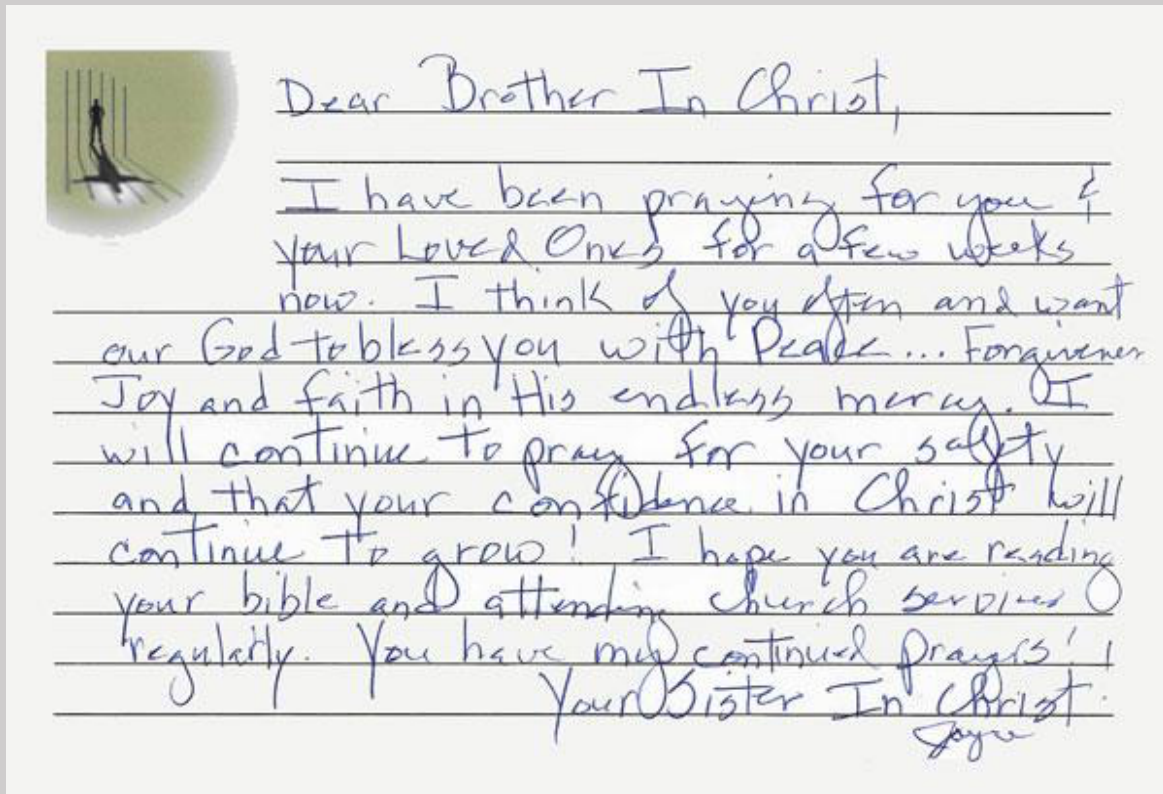 Dear Brother In Christ,
I have been praying for you &
your Loved Ones for a few weeks
now. I think of you often and want
our God to bless you with Peace... Forgiveness
Joy and faith in His endless mercy. I
will continue to pray for your safety
and that your confidence in Christ will
continue to grow! I hope you are reading
your bible and attending church services
regularly. You have my continued prayers!!
Your Sister In Christ.
Joyce